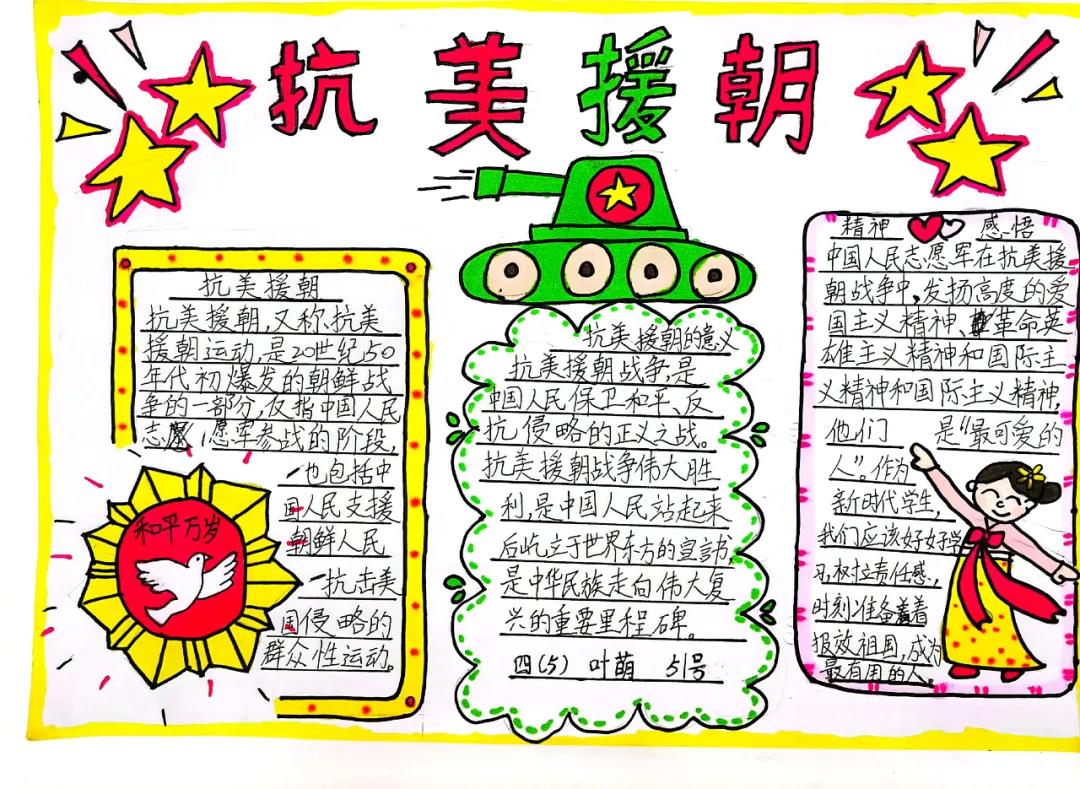 抗美援朝
抗美援朝
抗美援朝,又称抗美
援朝运动,是20世纪50
年代初爆发的朝鲜战
争的一部分,仅指中国人民
志愿军参战的阶段,
也包括中
国人民支援
朝鲜人民
抗击美
国侵略的
群众性运动。
和平万岁
抗美援朝的意义
抗美援朝战争,是
中国人民保卫和平、反
抗侵略的正义之战。
抗美援朝战争伟大胜
利,是中国人民站起来
后屹立于世界东方的宣言书,
是中华民族走向伟大复
兴的重要里程碑。
四(5) 叶萌 51号
精神 感悟
中国人民志愿军在抗美援
朝战争中,发扬高度的爱
国主义精神、革命英
雄主义精神和国际主
义精神和国际主义精神,
他们 是“最可爱的
人”。作为
新时代学生,
我们应该好好学
习,树立责任感,
时刻准备着
报效祖国,成为
最有用的人。